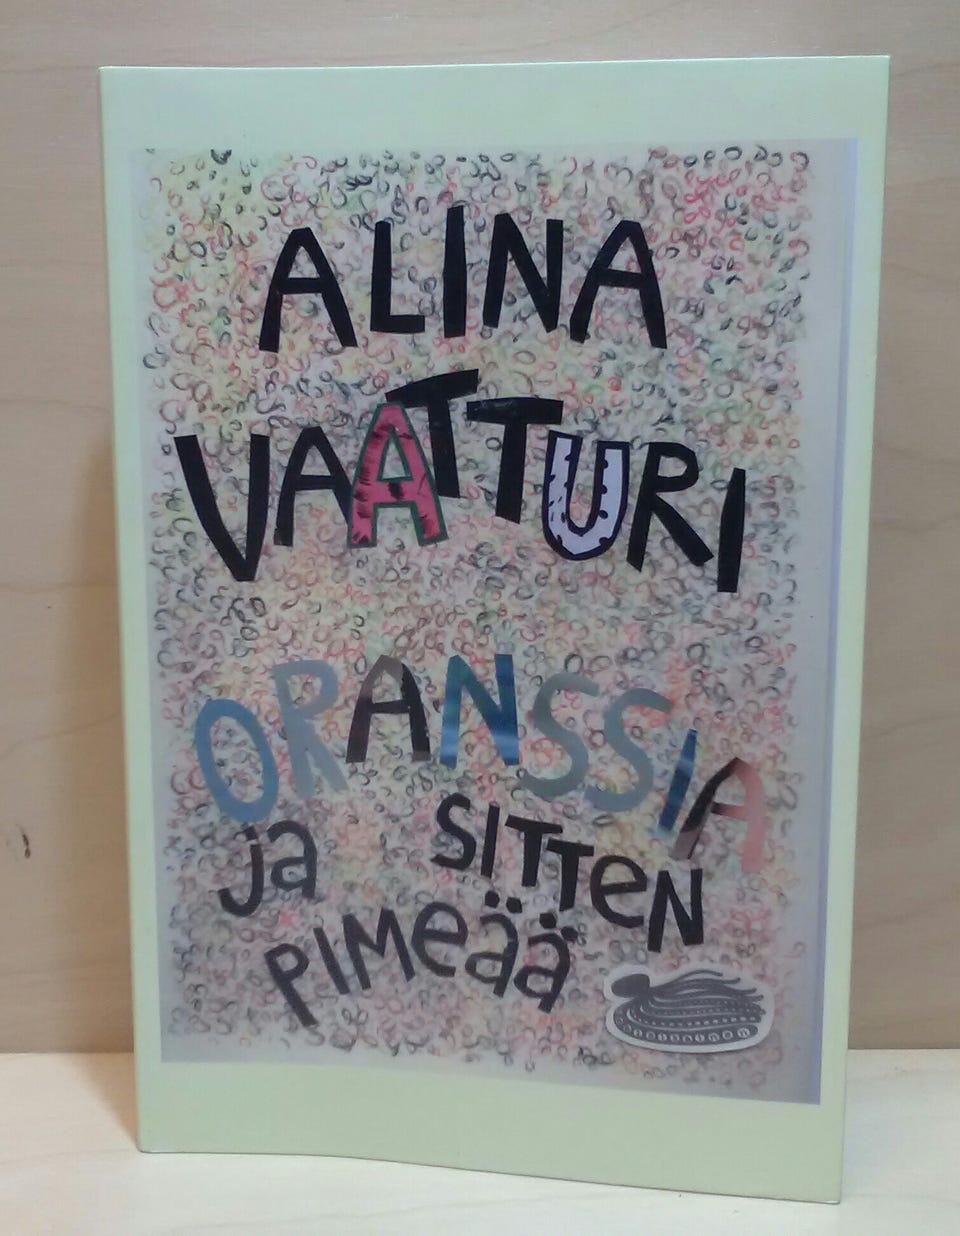 ALINA
VAATTURI
ORANSSIA
ja SITTEN
PIMeää